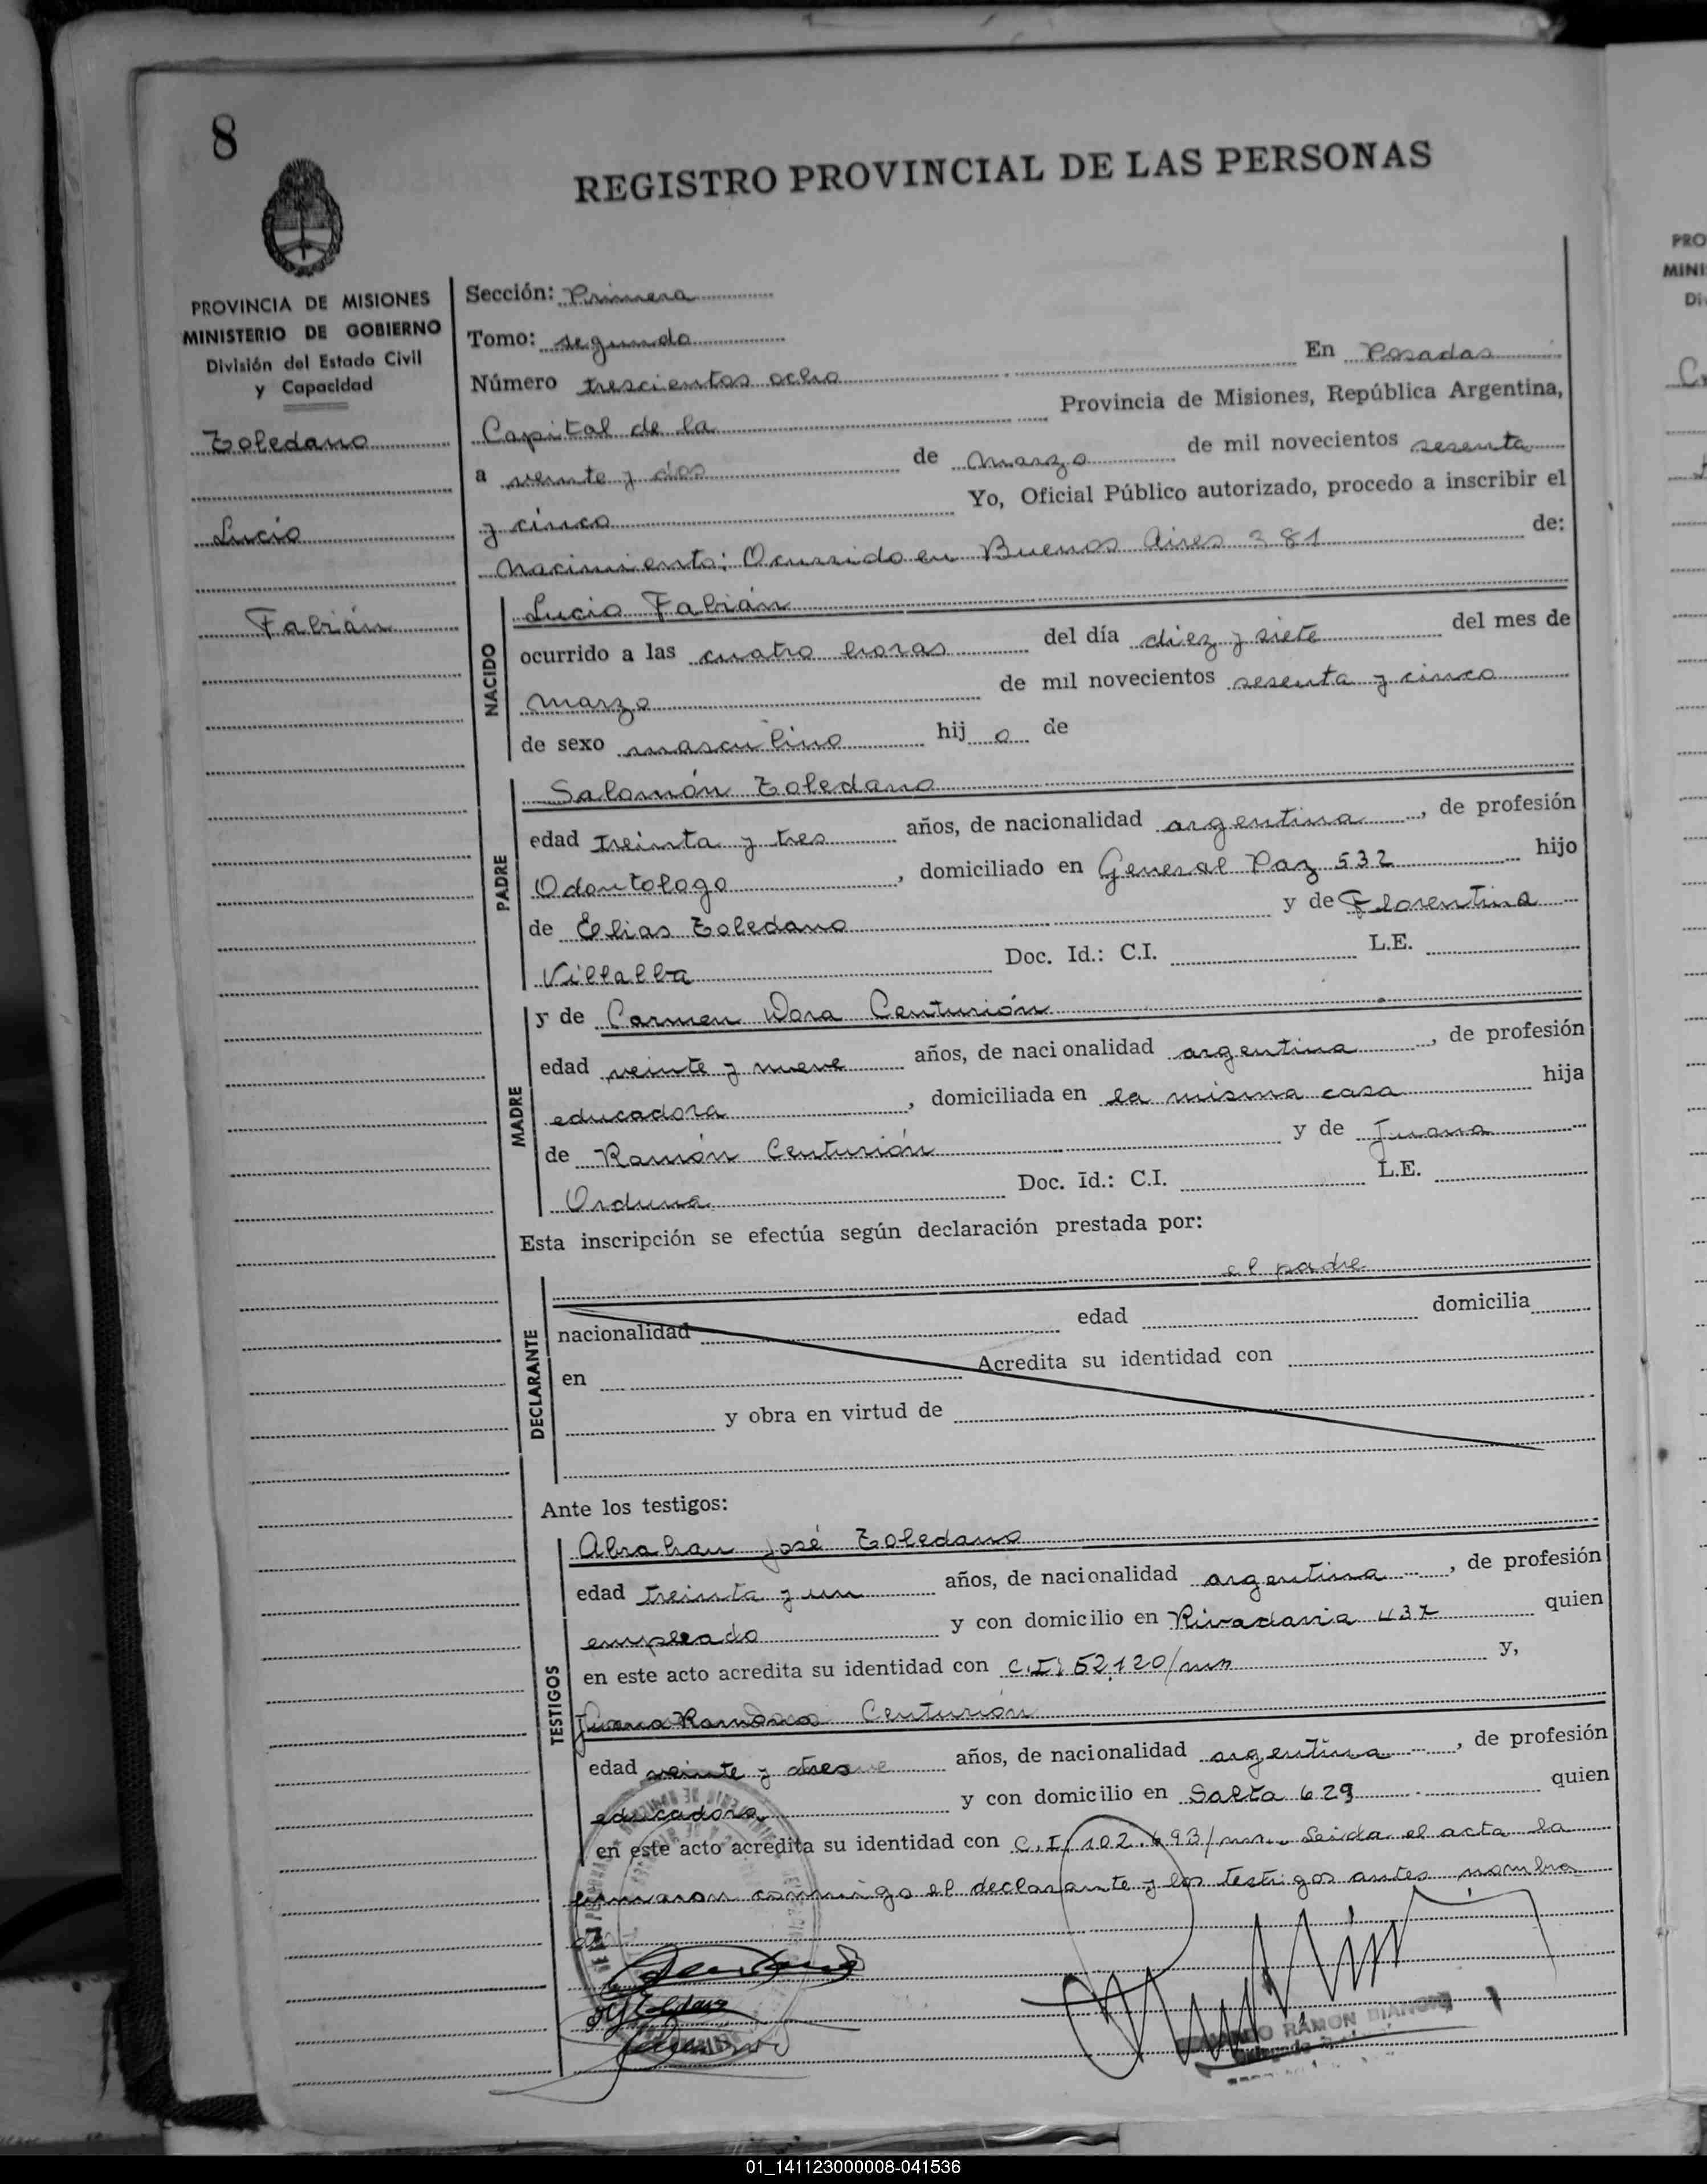 8
REGISTRO PROVINCIAL DE LAS PERSONAS
PROVINCIA DE MISIONES
MINISTERIO DE GOBIERNO
División del Estado Civil
y Capacidad
Toledano
Lucio
Fabián
Sección: Primera
Tomo: segundo
Número trescientos ocho En Posadas
Capital de la Provincia de Misiones, República Argentina,
a veinte y dos de marzo de mil novecientos sesenta
y cinco Yo, Oficial Público autorizado, procedo a inscribir el
Nacimiento: Ocurrido en Buenos Aires 381 de:
NACIDO
Lucio Fabián
ocurrido a las cuatro horas del día diez y siete del mes de
marzo de mil novecientos sesenta y cinco
de sexo masculino hij o de
PADRE
Salomón Toledano
edad treinta y tres años, de nacionalidad argentina, de profesión
Odontologo, domiciliado en General Paz 532 hijo
de Elias Toledano y de Florentina
Villalba Doc. Id.: C.I. L.E.
MADRE
y de Carmen Dora Centurión
edad veinte y nueve años, de nacionalidad argentina, de profesión
educadora, domiciliada en la misma casa hija
de Ramón Centurión y de Juana
Orduna Doc. Id.: C.I. L.E.
Esta inscripción se efectúa según declaración prestada por:
el padre
DECLARANTE
nacionalidad edad domicilia
en Acredita su identidad con
y obra en virtud de
Ante los testigos:
TESTIGOS
Abrahan José Toledano
edad treinta y un años, de nacionalidad argentina, de profesión
empleado y con domicilio en Rivadavia 437 quien
en este acto acredita su identidad con C.I: 52,120/mn y,
Juana Ramona Centurión
edad veinte y tres años, de nacionalidad argentina, de profesión
educadora y con domicilio en Salta 629 quien
en este acto acredita su identidad con C.I. 102.693/mn. Leida el acta la
firmaron conmigo el declarante y los testigos antes nombra
dos
RAMON BIANCHI
PRO
MINI
Di
01_141123000008-041536